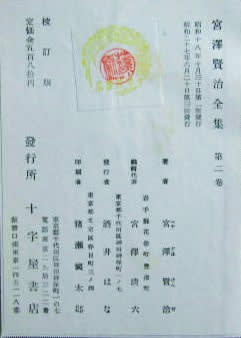 宮澤賢治全集 第二卷
昭和十八年十月三十日第一刷發行
昭和二十七年六月二十日第三刷發行
著者 宮澤賢治
みやざわけんぢ
岩手縣花卷町豊澤町
編輯代表 宮澤清六
東京都千代田區神田神保町一ノ七
發行者 酒井はな
東京都文京區春日町三ノ四
印刷者 猪瀬純太郎
校訂版
定價金五百八拾円
發行所 十字屋書店
東京都千代田區神田神保町一の七